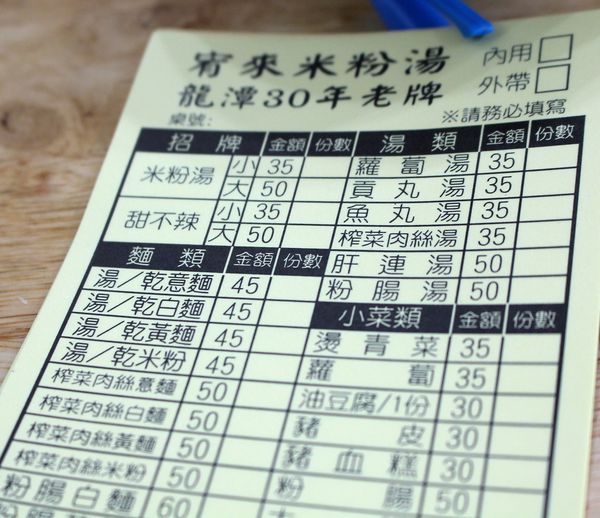 甯來米粉湯
內用□
龍潭30年老牌
外帶□
桌號:
※請務必填寫
招牌 金額 份數
米粉湯 小 35
大 50
甜不辣 小 35
大 50
麵類 金額 份數
湯/乾意麵 45
湯/乾白麵 45
湯/乾黃麵 45
湯/乾米粉 45
榨菜肉絲意麵 50
榨菜肉絲白麵 50
榨菜肉絲黃麵 50
榨菜肉絲米粉 50
粉腸白麵 60
湯類 金額 份數
蘿蔔湯 35
貢丸湯 35
魚丸湯 35
榨菜肉絲湯 35
肝連湯 50
粉腸湯 50
小菜類 金額 份數
燙青菜 35
蘿蔔 35
油豆腐/1份 30
豬皮 30
豬血糕 30
粉腸 50